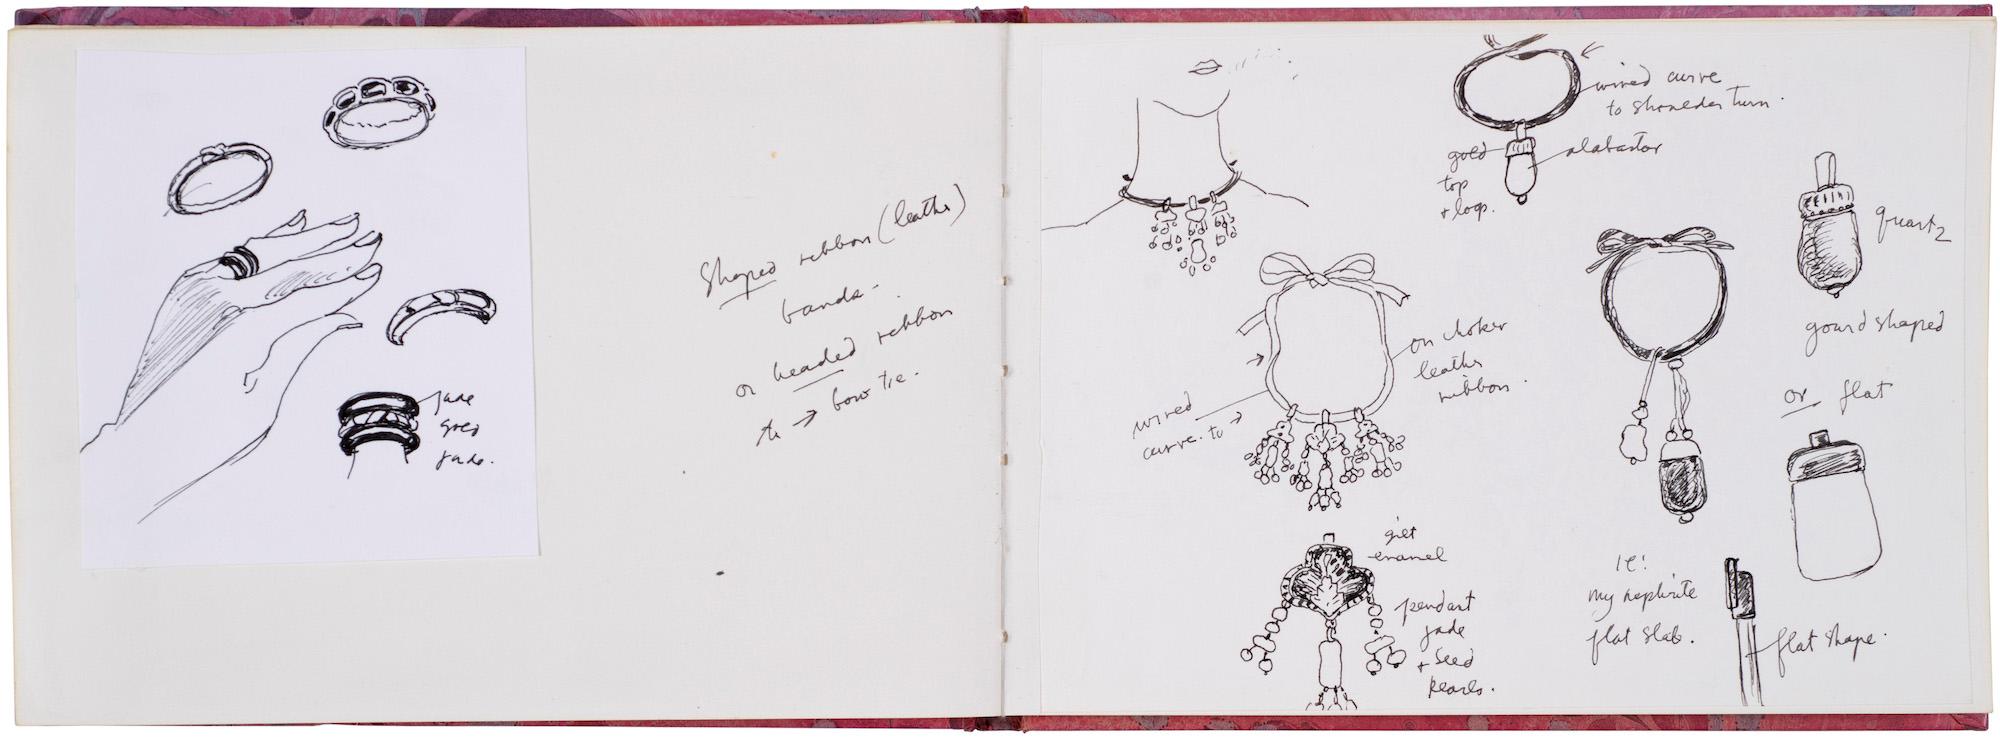 jade
gold
jade.
Shaped ribbon (leather)
bands -
or beaded ribbon
to → bow tie.
wired curve
to shoulder turn.
gold
top
+ loop.
alabaster
quartz
gourd shaped
or flat
on choker
leather
ribbon.
wired
curve. to →
gilt
enamel
pendant
jade
+ seed
pearls.
ie:
my nephrite
flat slab.
flat shape.